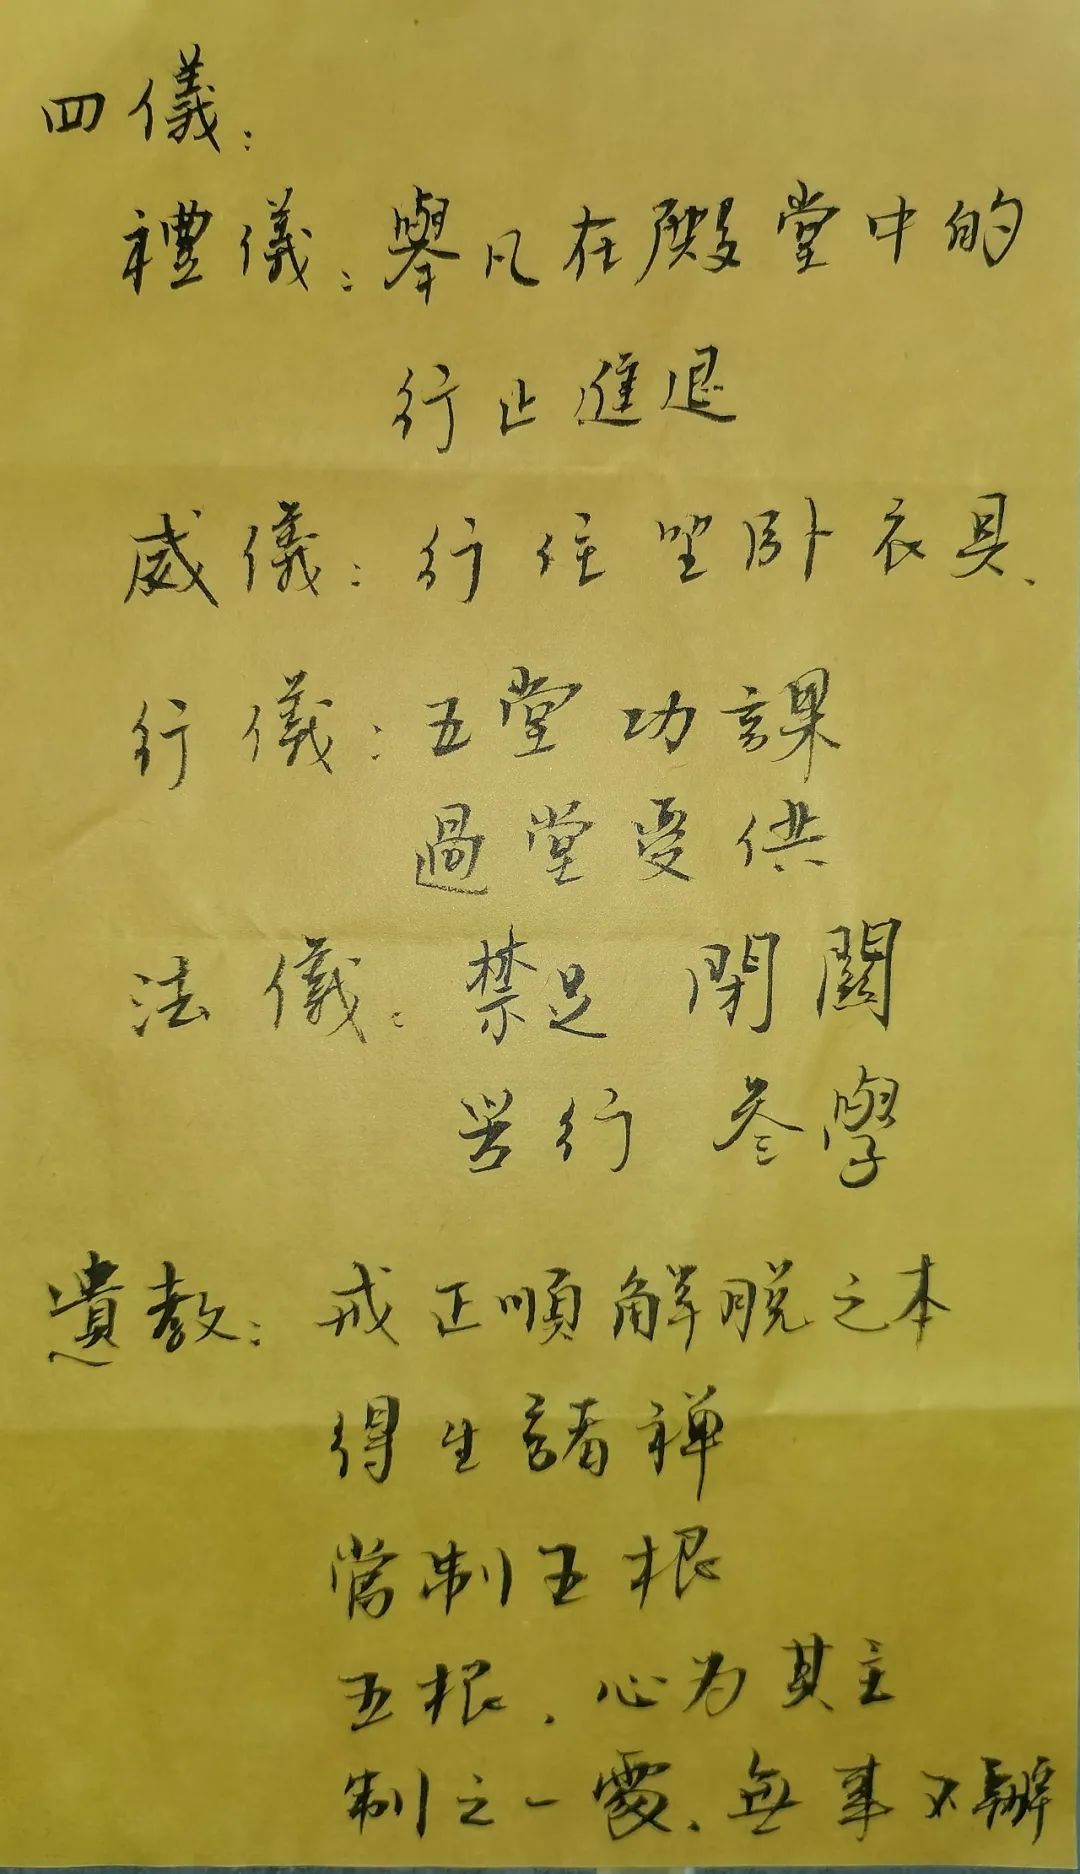 四儀：
禮儀：舉凡在殿堂中的
行止進退
威儀：行住坐卧衣具、
行儀：五堂功課
過堂受供
法儀：禁足 閉關
苦行 叄學
遺教：戒正順解脱之本
得生諸禅
當制五根
五根、心为其主
制之一處、無事不辦